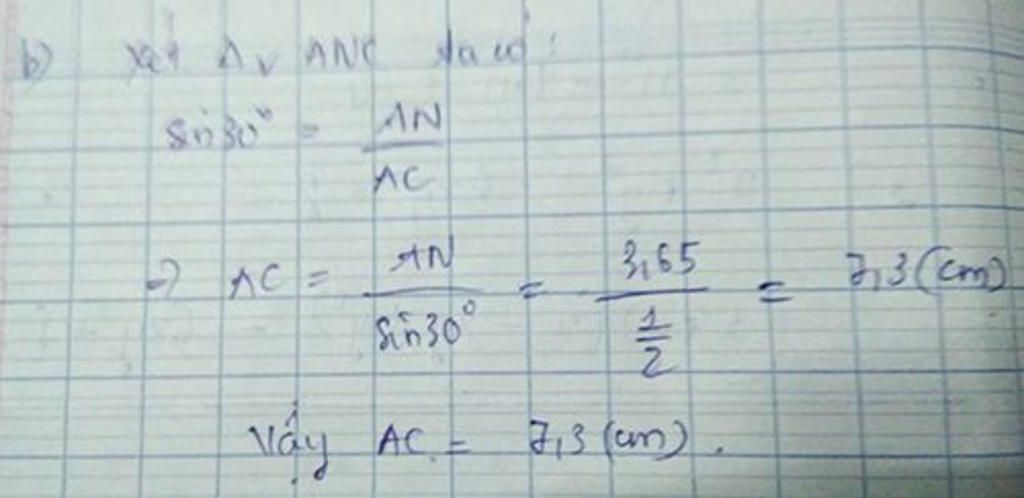 b) Xét Δv ANC ta có:
sin30° = AN/AC
=> AC = AN/sin30° = 3,65/(1/2) = 7,3 (cm)
Vậy AC = 7,3 (cm).